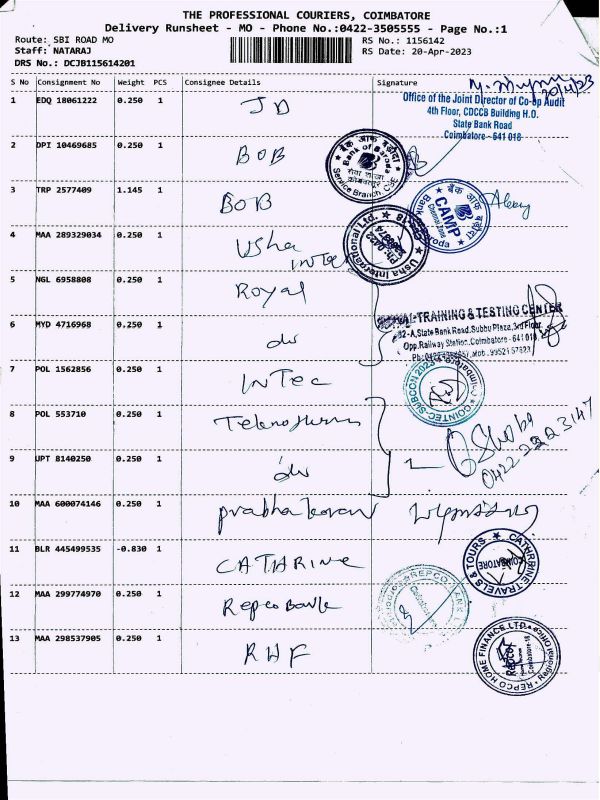 THE PROFESSIONAL COURIERS, COIMBATORE
Delivery Runsheet - MO - Phone No.:0422-3505555 - Page No.:1
Route: SBI ROAD MO
RS No.: 1156142
Staff: NATARAJ
RS Date: 20-Apr-2023
DRS No.: DCJB115614201
S No Consignment No Weight PCS Consignee Details Signature
20/4/23
1 EDQ 18061222 0.250 1 JD
Office of the Joint Director of Co-op Audit
4th Floor, CDCCB Building H.O.
State Bank Road
Coimbatore - 641 018
2 DPI 10469685 0.250 1 BOB
बैंक ऑफ़ बड़ौदा
Bank of Baroda
Service Branch, CBE
3 TRP 2577409 1.145 1 BOB
बैंक ऑफ़ बड़ौदा
CAMP
Bank of Baroda
4 MAA 289329034 0.250 1 Usha
Intec
Usha International Ltd.
5 NGL 6958808 0.250 1 Royal
ROYAL TRAINING & TESTING CENTER
82-A, State Bank Road, Subbu Plaza, 3rd Floor,
Opp. Railway Station, Coimbatore - 641 018
6 MYD 4716968 0.250 1 do
7 POL 1562856 0.250 1 Intec
COINTEC-SUBCON 2023
8 POL 553710 0.250 1
G Shoba
0422 2223147
9 JPT 8140250 0.250 1 do
10 MAA 600074146 0.250 1 Prabhakaran
11 BLR 445499535 -0.830 1 CATHRINE
CATHRINE TRAVELS & TOURS
COIMBATORE
12 MAA 299774970 0.250 1 Repco Bank
REPCO BANK
13 MAA 298537905 0.250 1 RHF
REPCO HOME FINANCE LTD.
Regional Office
Repco
Coimbatore-18